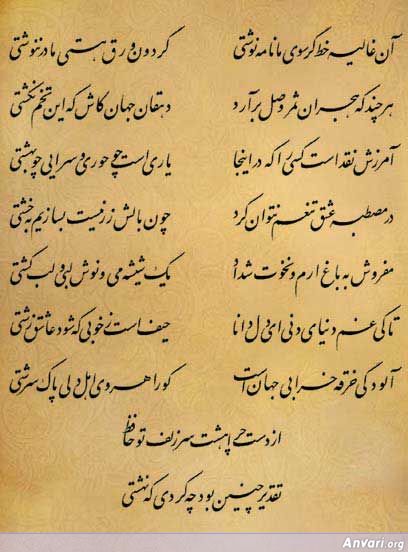 آن غالیه خط گر سوی ما نامه نوشتی گردون ورق هستی ما درننوشتی
هر چند که هجران ثمر وصل برآرد دهقان جهان کاش که این تخم نکشتی
آمرزش نقد است کسی را که در اینجا یاری است چو حوری و سرایی چو بهشتی
در مصطبه عشق تنعم نتوان کرد چون بالش زر نیست بسازیم به خشتی
مفروش به باغ ارم و نخوت شداد یک شیشه می و نوش لبی و لب کشتی
تا کی غم دنیای دنی ای دل دانا حیف است ز خوبی که شود عاشق زشتی
آلودگی خرقه خرابی جهان است کو راهروی اهل دلی پاک سرشتی
از دست چرا هشت سر زلف تو حافظ
تقدیر چنین بود چه کردی که نهشتی
Anvari.org